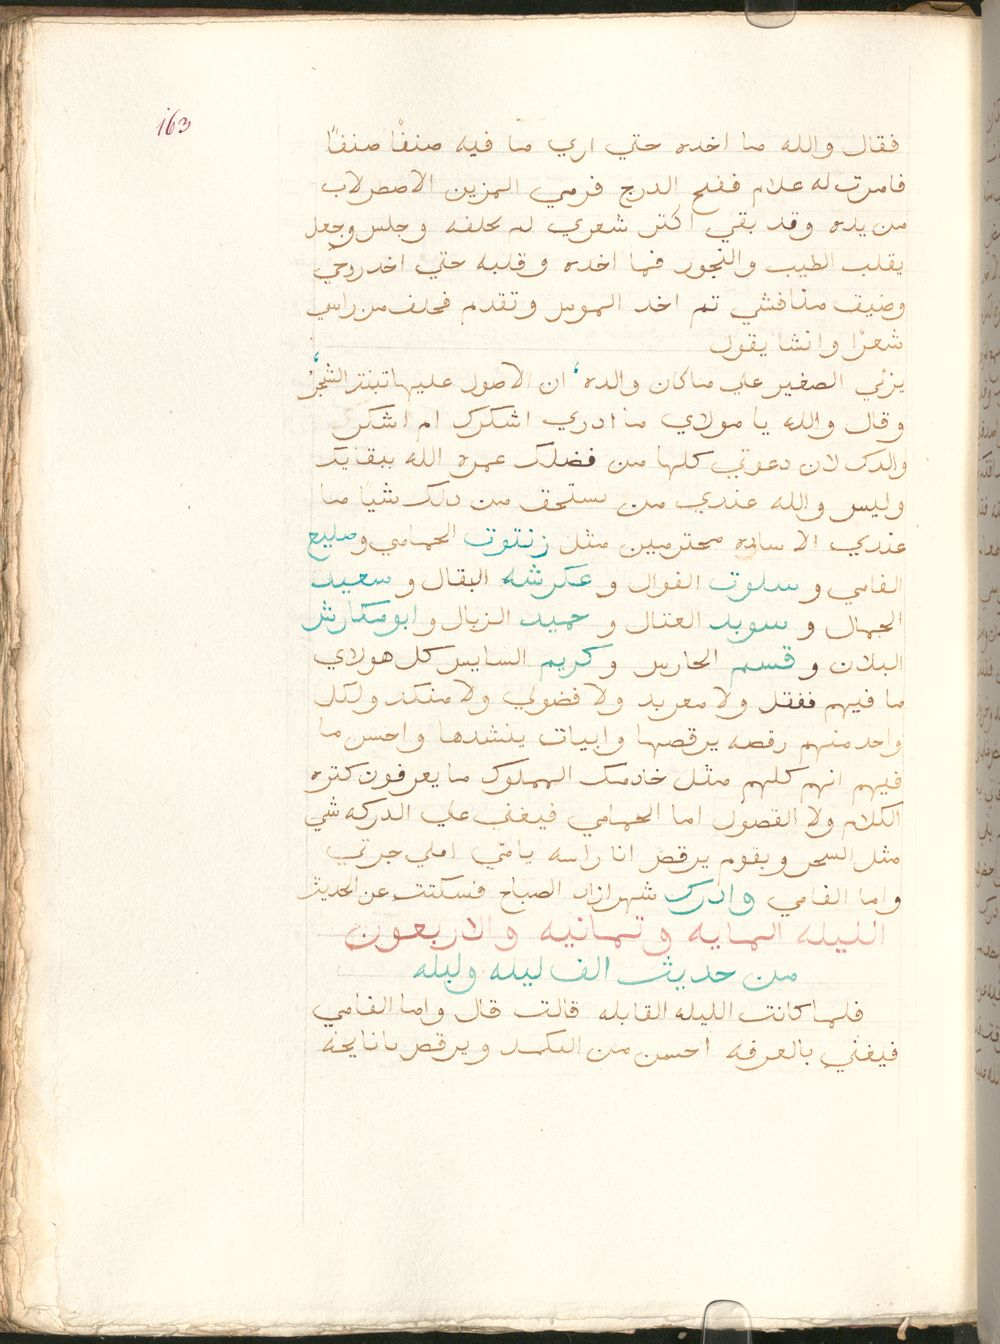 163
فقال والله ما اخده حتي اري ما فيه صنفًا صنفًا
فامرت له علام ففتح الدرج فرمي المزين الاصطرلاب
من يده وقد بقي اكتر شعري لم يحلفه وجلس وجعل
يقلب الطيب والبخور فما اخده وقلبه حتي اخد روحي
وضيف منافشي تم اخد الموس وتقدم فحلف من راسي
شعرًا وانشا يقول
يزني الصغير علي ماكان والده، ان الاصول عليها تبنتر الشجرُ،
وقال والله يا مولاي ما ادري اشكرك ام اشكرك
والدك لان دعوتي كلها من فضلك عمره الله ببقايك
وليس والله عندي من نستحق من دلك شيًا ما
عندي الا ساده محترمين مثل زنتوت الحمامي وصليع
الفامي و سلوت الفوال و عكرشه البقال و سعيد
الجمال و سويد العتال و حميد الزبال و ابو مكارش
البلان و قسم الحارس و كريم السايس كل هولاي
ما فيهم فقتل ولا معربد ولا فضولي ولا منكد ولكل
واحد منهم رقصه يرقصها وابيات ينشدها واحسن ما
فيهم انهم كلهم مثل خادمك المملوك ما يعرفون كتره
الكلام ولا الفصول اما الحمامي فيغني علي الدركه شي
مثل السحر ويقوم يرقص انا راسه يا متي املي جرتي
واما الفامي وادرك شهرازاد الصباح فسكتت عن الحديث
الليله المايه وتمانيه والاربعون
من حديث الف ليله وليله
فلما كانت الليله القابله قالت قال واما الفامي
فيغني بالعرفه احسن من الكمد ويرقص يا نايحه